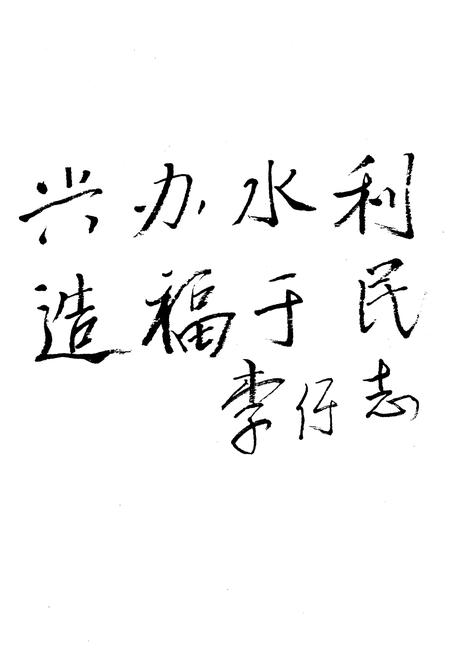 兴办水利
造福于民
李仔志